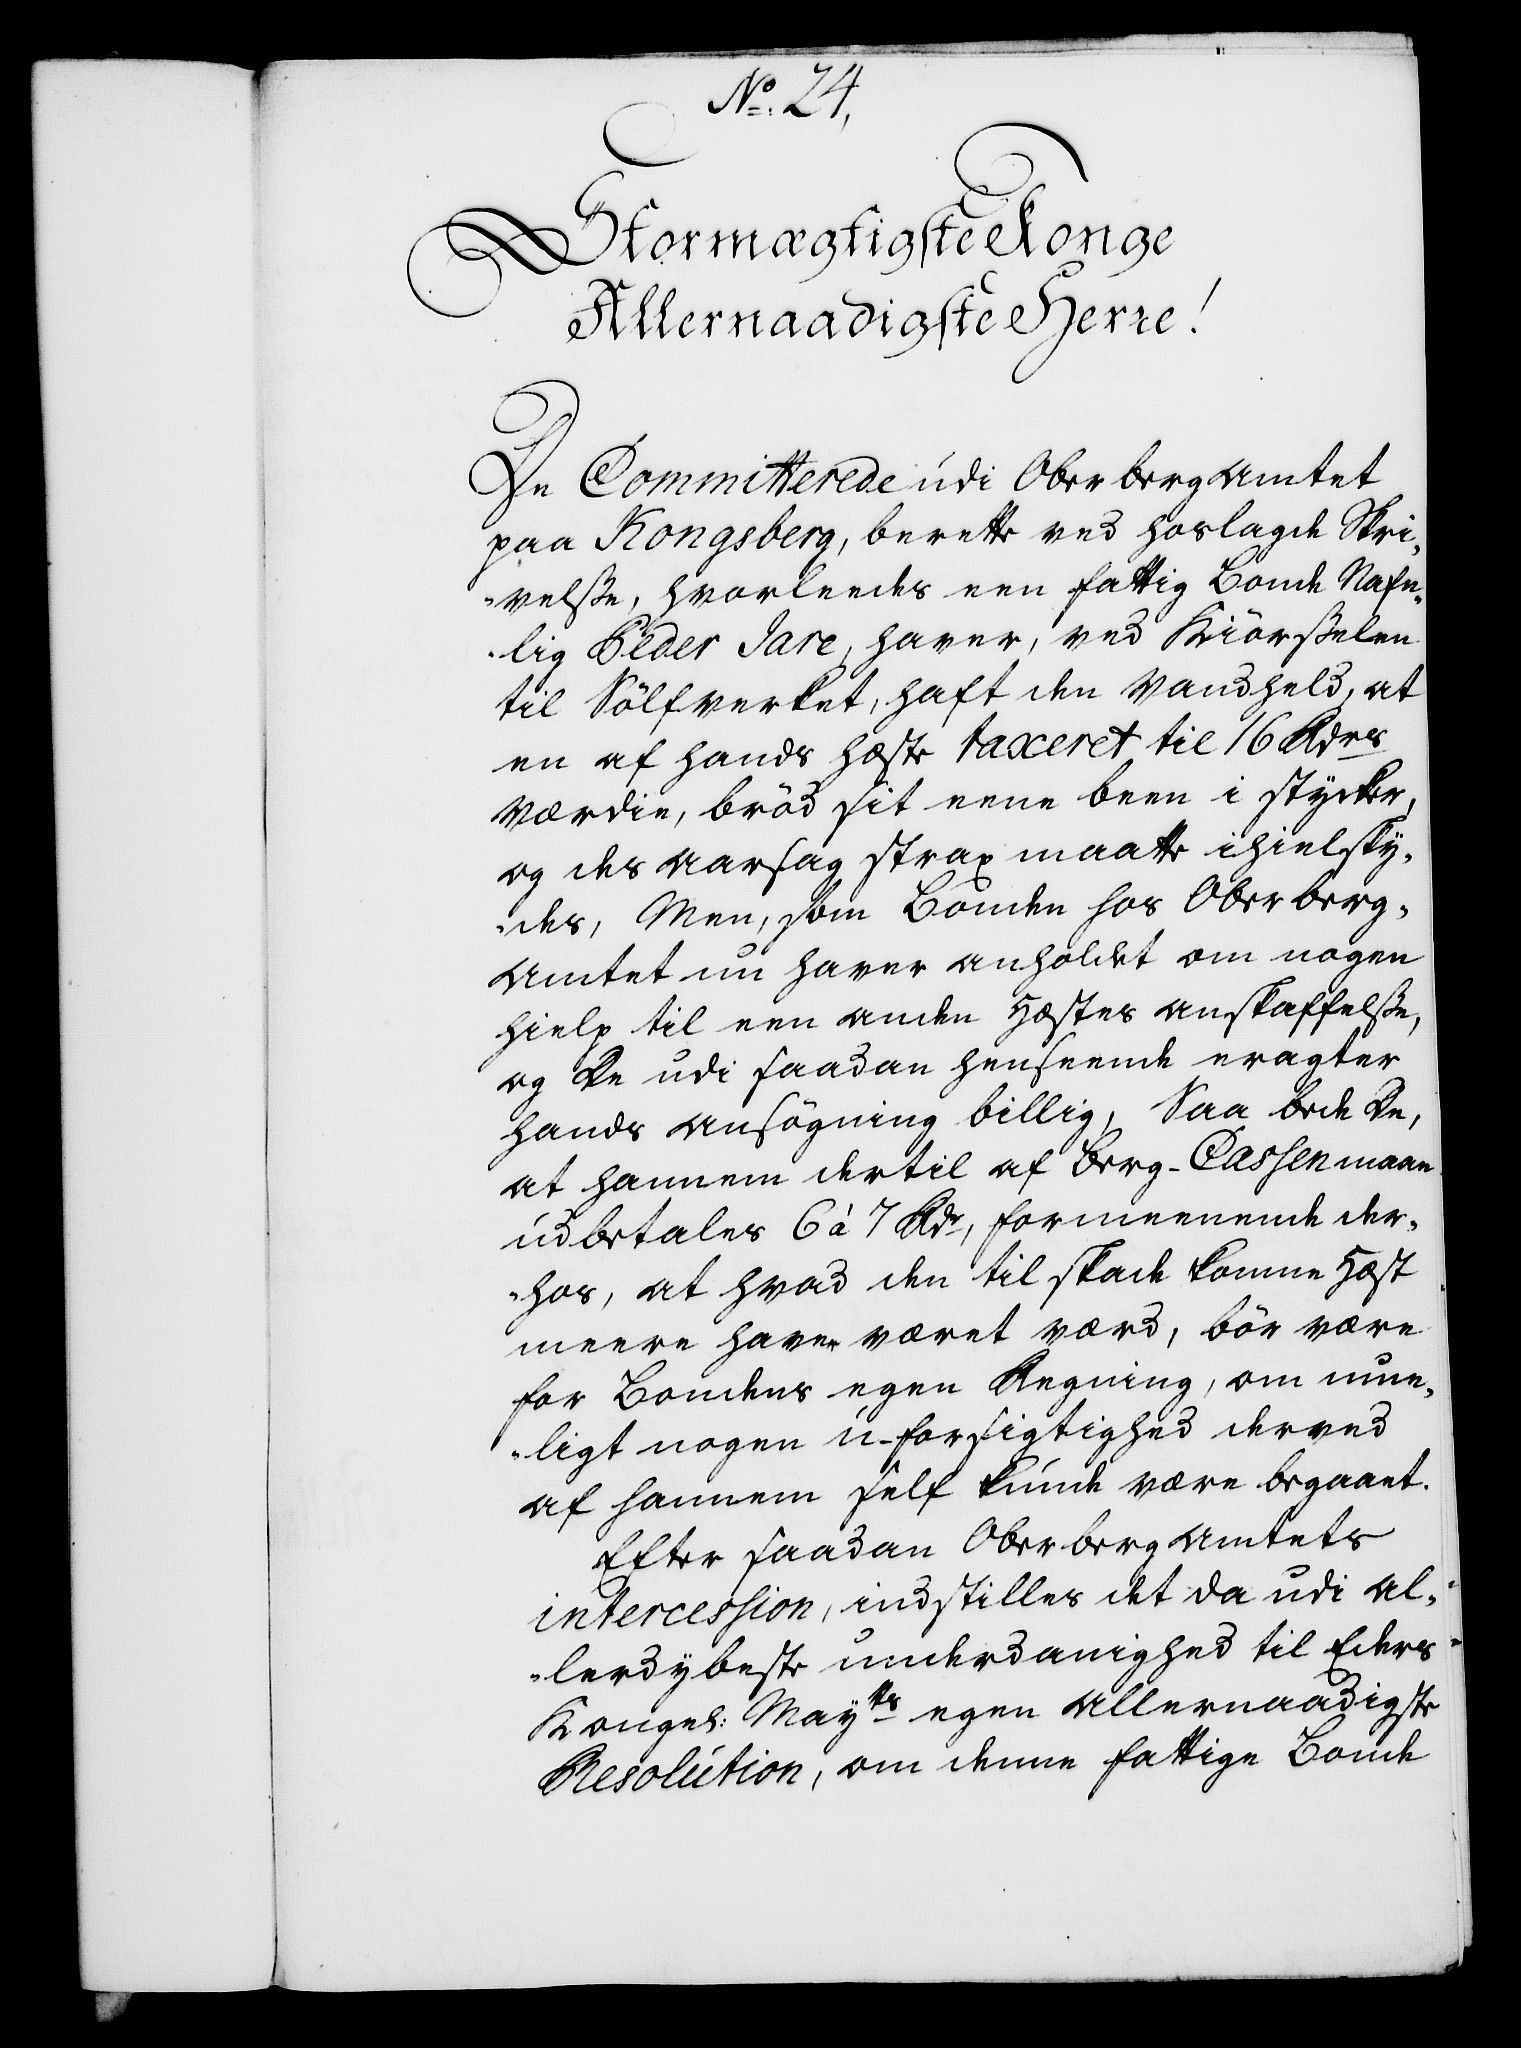 No. 24,
Stormægtigste Konge
Allernaadigste Herre!
De Committerede udi Oberberg Amtet
paa Kongsberg, berette ved hoslagde Skri„
„velsse, hvorleedes een fattig Bonde Nafn„
„lig Peder Jare, haver, ved Kiörsselen
til Sölfverket, haft den Vandheld, at
en af hands heste taxeret til 16 Rdrs
Værdie, bröd sit eene been i stycker,
og des aarsag strax maatte ihielsky„
„des, Men, som Bonden hos Oberberg„
Amtet nu haver anholdet om nogen
hielp til een anden Hæstes anskaffelsse,
og De udi saadan henseende eragter
hands ansögning billig, Saa bede De,
at hannem dertil af Berg-Cassen maae
udbetales 6 à 7 Rdr, formeenende der„
„hos, at hvad den til skade komne Hæst
meere haver været værd, bör være
for Bondens egen Regning, om mue„
„ligt nogen u-forsigtighed derved
af hannem self kunde være begaaet.
Efter saadan Oberberg Amtets
intercession, indstilles det da udi al„
„lerdybeste underdanighed til Eders
Kongel: Mayts egen allernaadigste
Resolution, om denne fattige Bonde